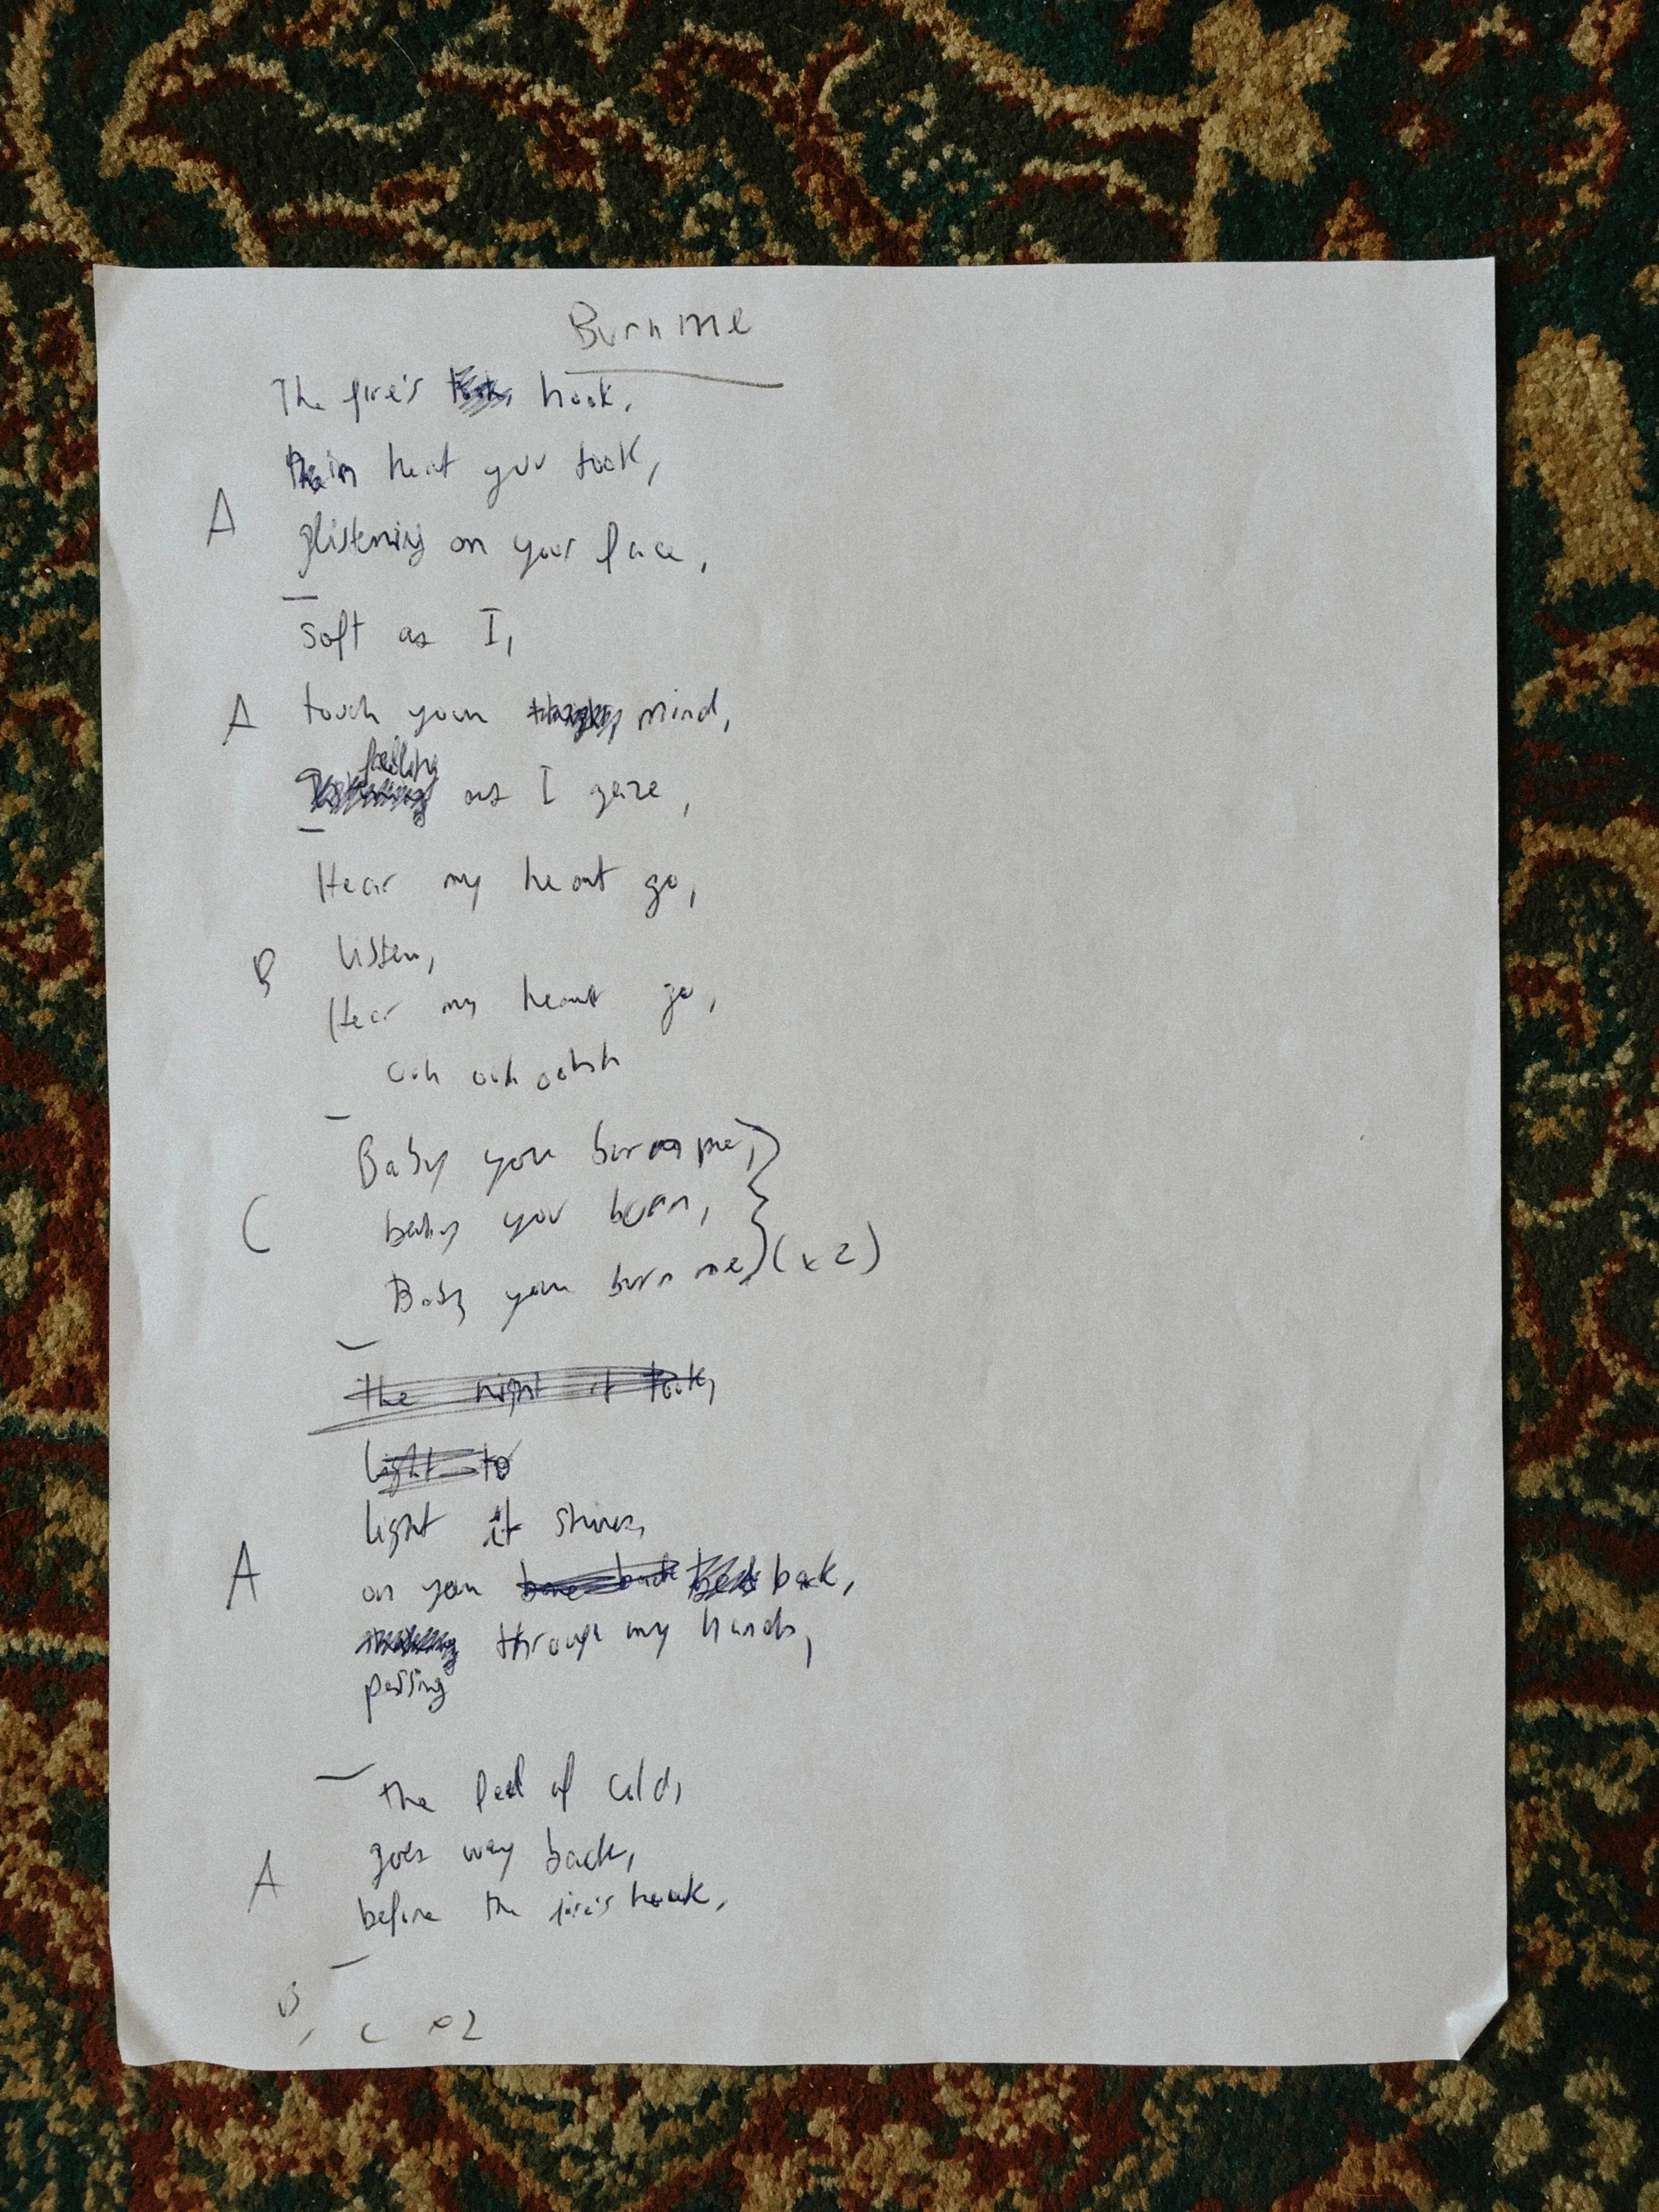 Burn me
The fire's hook,
heat you took,
A
glistening on your face,
soft as I,
A touch your mind,
feeling as I gaze,
Hear my heart go,
B listen,
Hear my heart go,
ooh ooh oohh
Baby you burn me,
C baby you burn,
Baby you burn me (x2)
the night it took,
light to
light it shines,
A on your back,
through my hands,
passing
the feel of cold,
goes way back,
A
before the fire's hook,
B, C x2